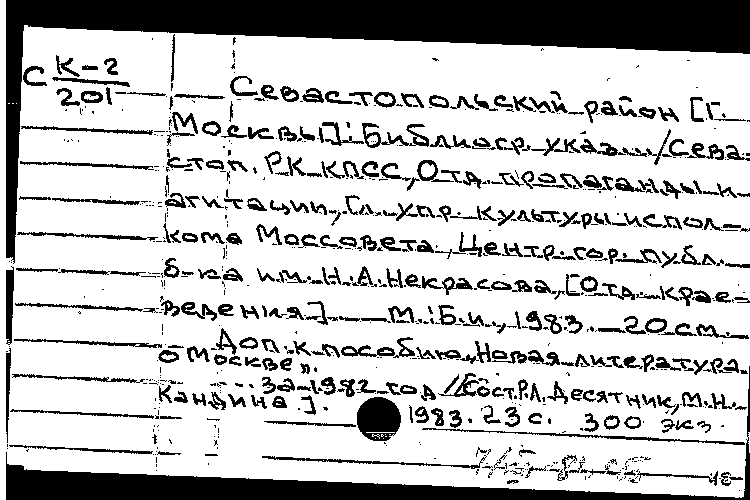 С К-2
201
Севастопольский район [Г.
Москвы]: Библиогр. указ... / Сева-
стоп. РК КПСС, Отд. пропаганды и
агитации, Гл. упр. культуры испол-
кома Моссовета, Центр. гор. публ.
б-ка им. Н.А.Некрасова, [Отд. крае-
ведения]. — М.: Б.и., 1983. — 20 см.
Доп. к пособию „Новая литература
о Москве".
... за 1982 год / [Сост. Р.Л. Десятник, М.Н.
Кандина].
1983. 23 с. 300 экз.